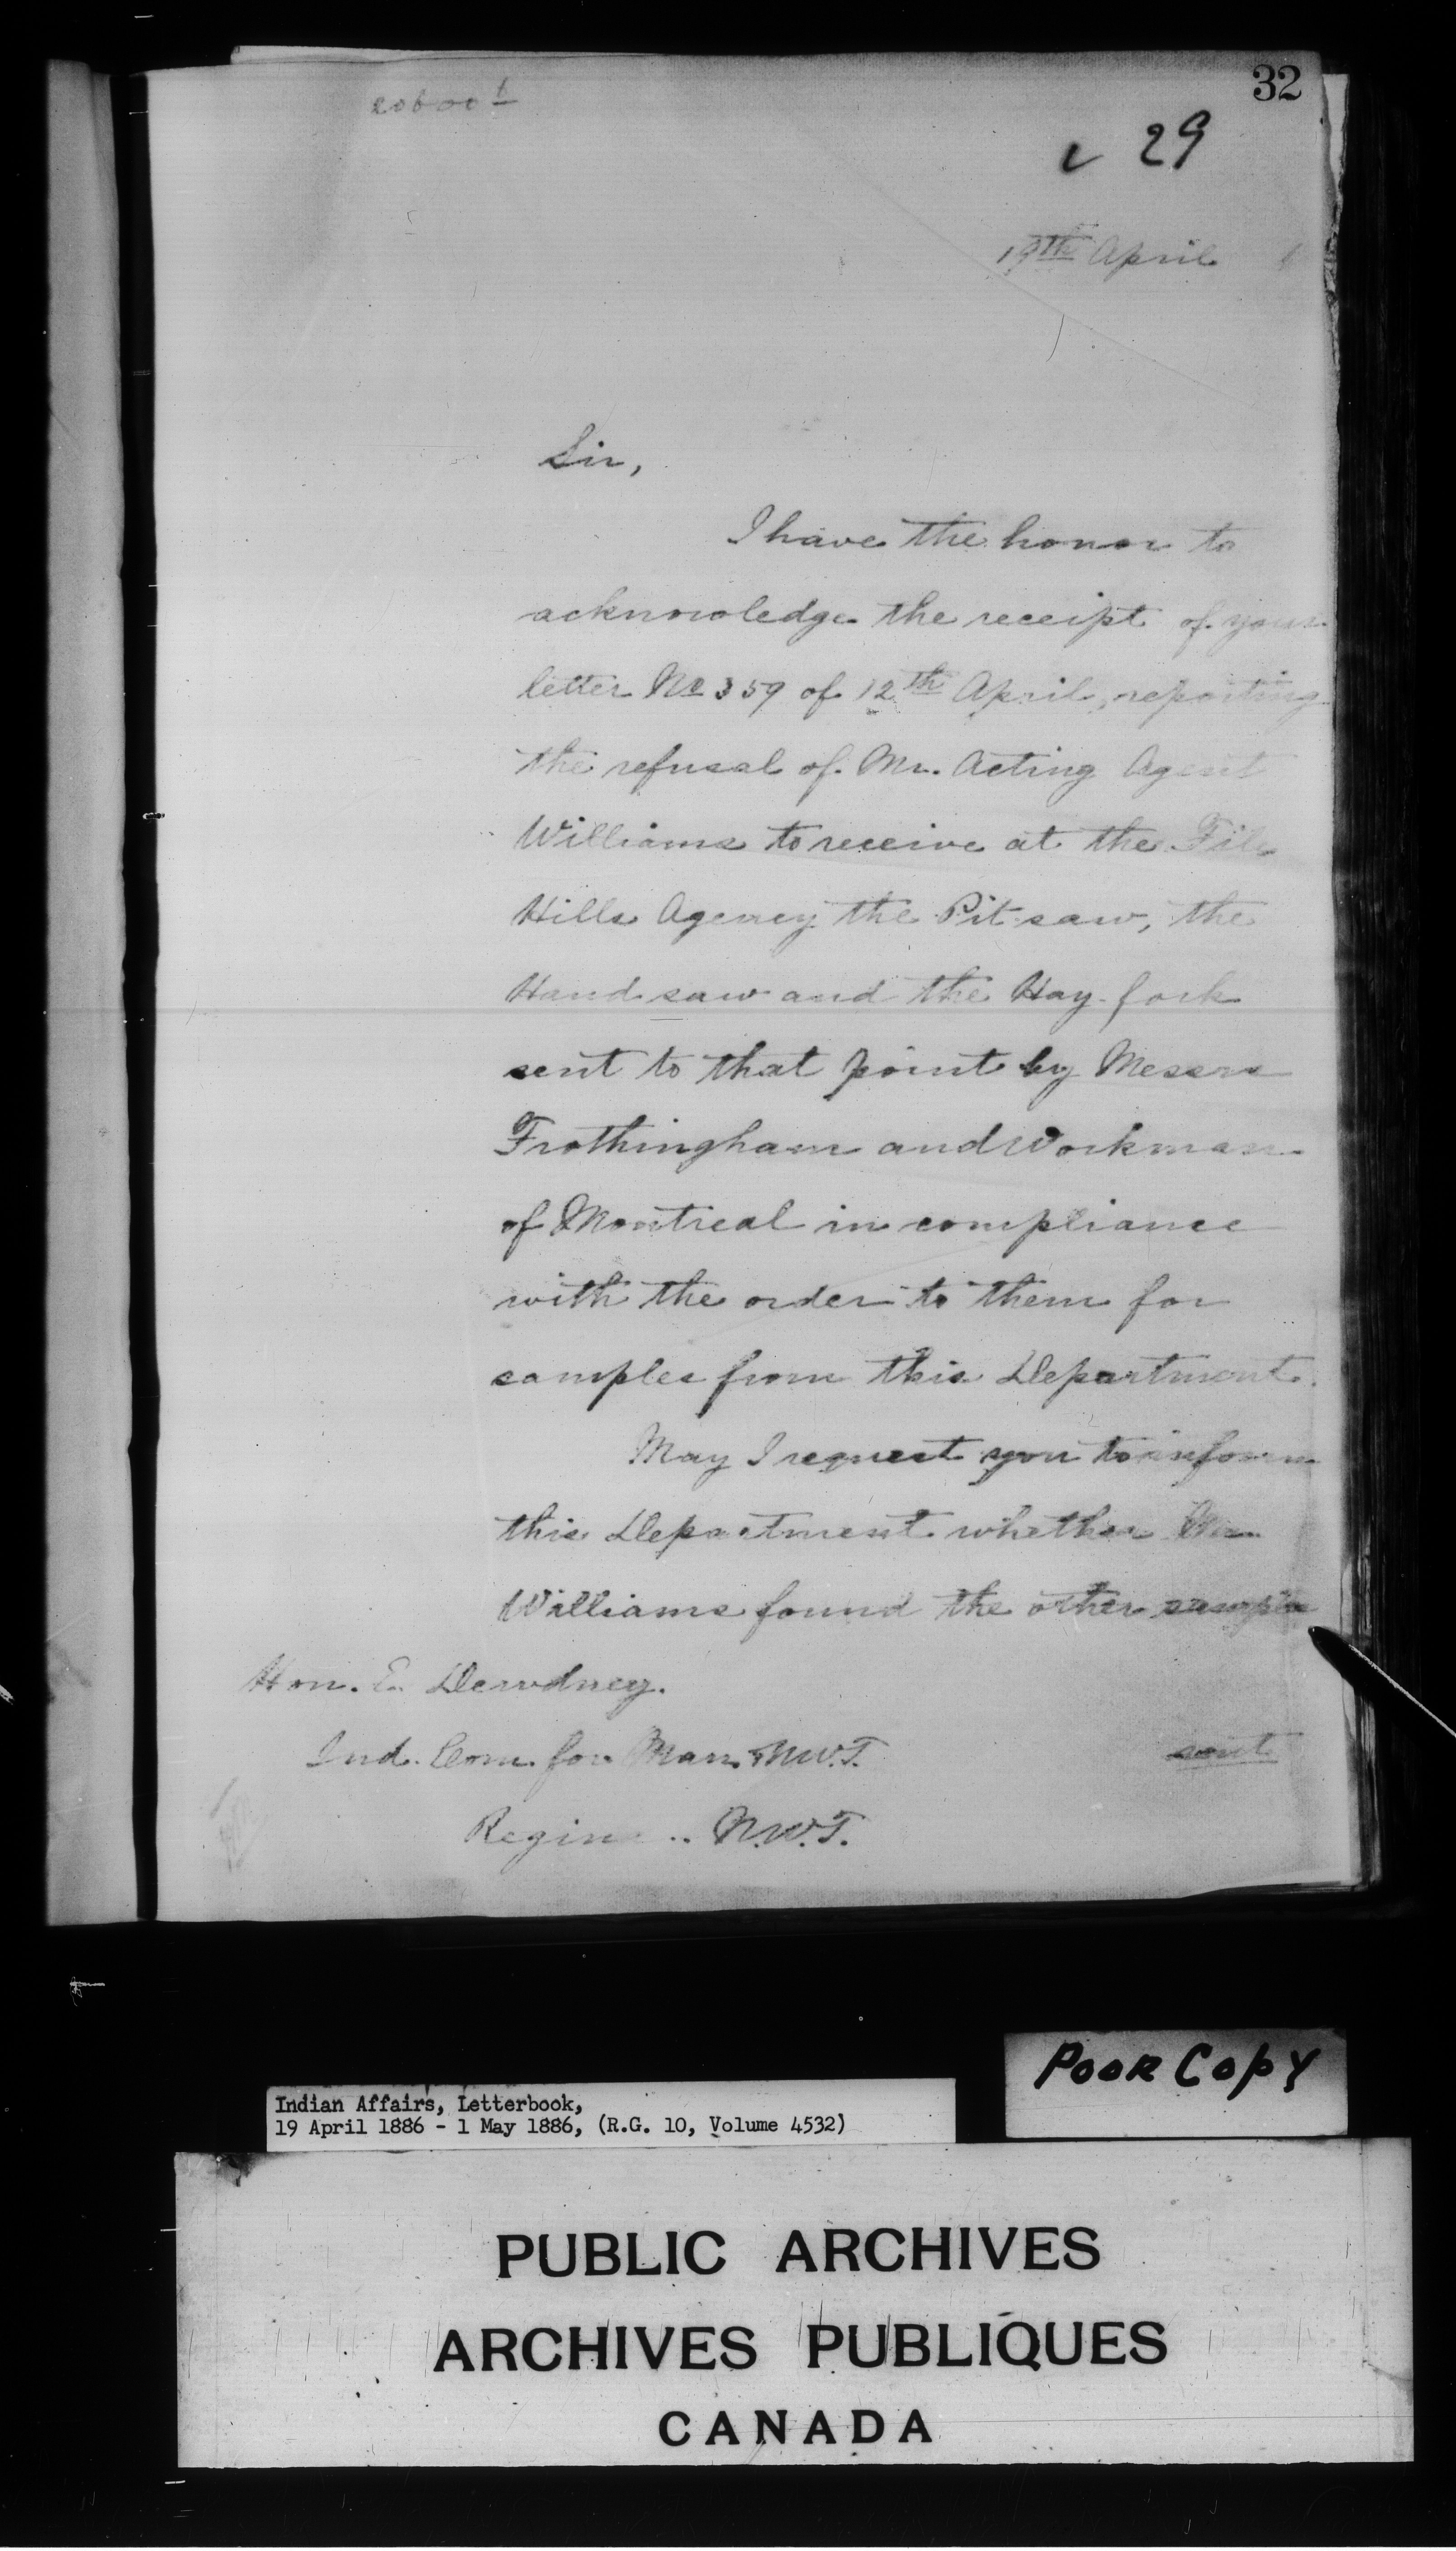 32
29
19th April
Sir,
I have the honor to
acknowledge the receipt of your
letter No 359 of 12th April, reporting
the refusal of Mr. Acting Agent
Williams to receive at the File
Hills Agency the Pit saw, the
Hand saw and the Hay-fork
sent to that point by Messrs
Frothingham and Workman
of Montreal in compliance
with the order to them for
samples from this Department.
May I request you to inform
this Department whether Mr.
Williams found the other samples
Hon. E. Dewdney.
Ind. Com. for Man. & N.W.T.
sent
Regina .. N.W.T.
POOR COPY
Indian Affairs, Letterbook,
19 April 1886 - 1 May 1886, (R.G. 10, Volume 4532)
PUBLIC ARCHIVES
ARCHIVES PUBLIQUES
CANADA